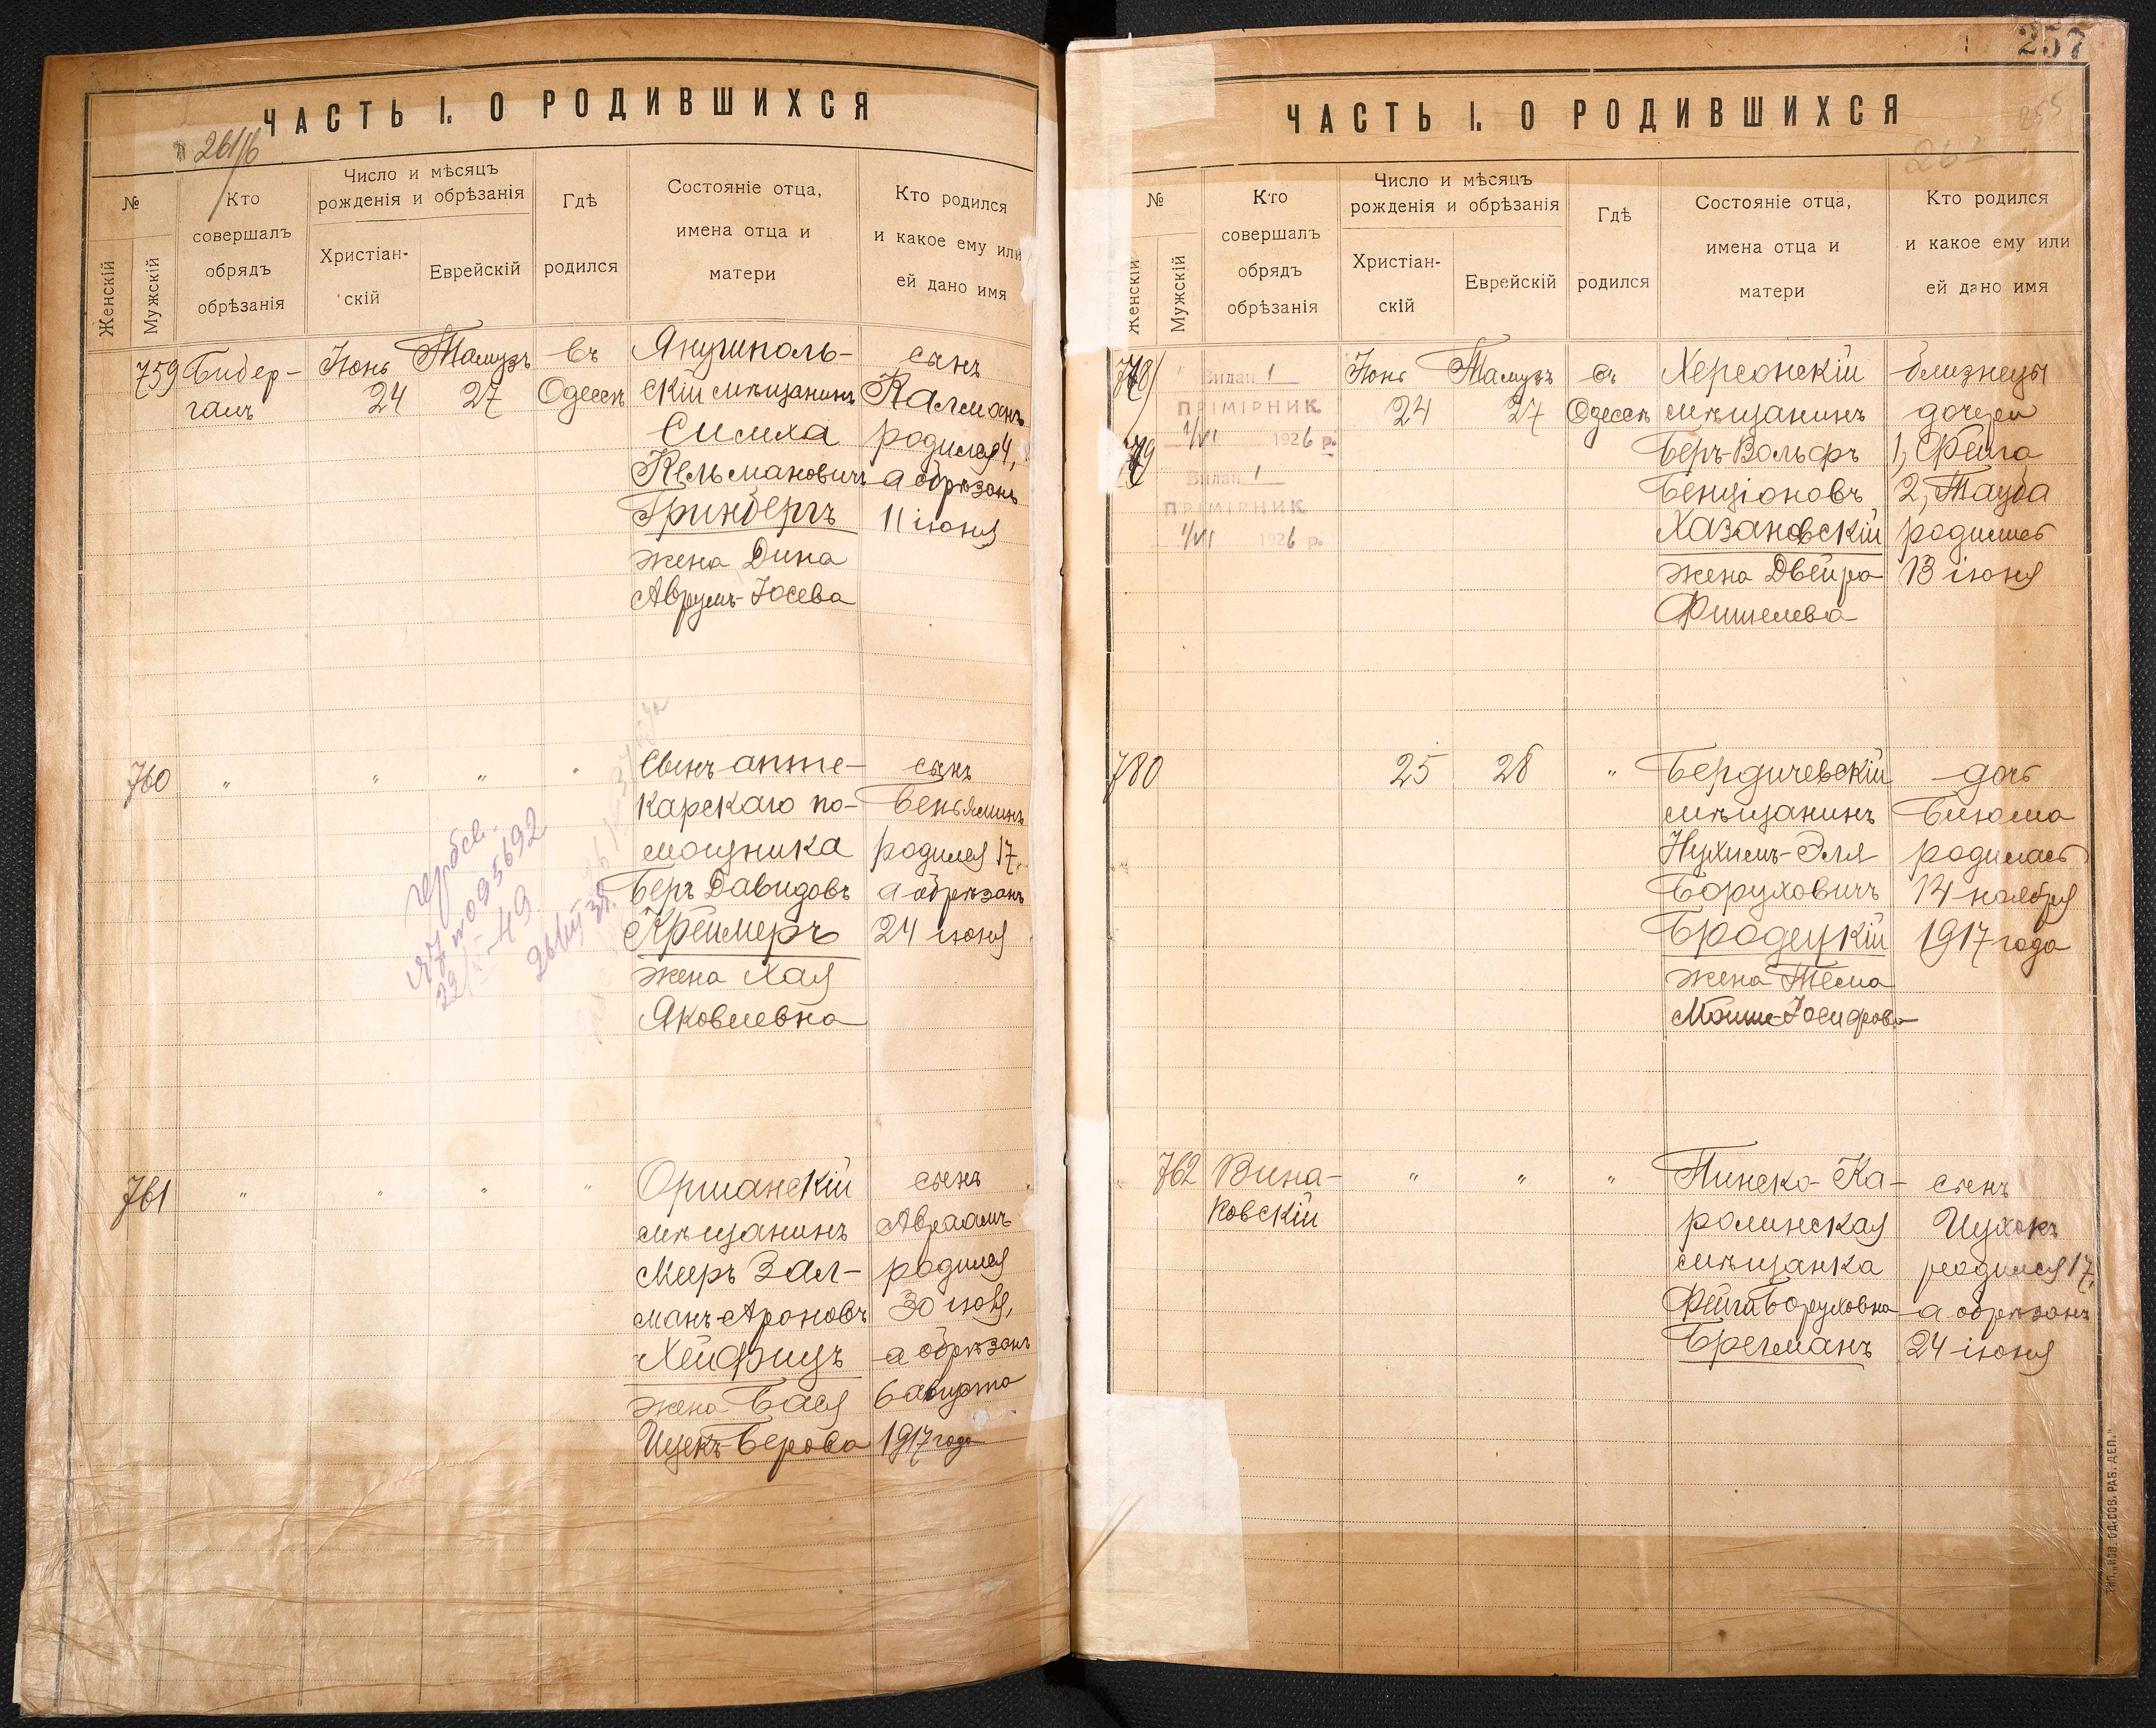 ЧАСТЬ I. О РОДИВШИХСЯ
261/6
№
Женскій
Мужскій
Кто
совершалъ
обрядъ
обрѣзанія
Число и мѣсяцъ
рожденія и обрѣзанія
Христіан-
скій
Еврейскій
Гдѣ
родился
Состояніе отца,
имена отца и
матери
Кто родился
и какое ему или
ей дано имя
759
Бидер-
галъ
Іюнь
24
Тамузъ
27
Въ
Одессѣ
Янушполь-
скій мѣщанинъ
Симха
Кельмановичъ
Гринбергъ
жена Дина
Аврумъ-Іосева
сынъ
Калманъ
родился 4,
а обрѣзанъ
11 іюня
760
"
"
"
"
Сынъ апте-
карскаго по-
мощника
Беръ Давидовъ
Креймеръ
жена Хая
Яковлевна
сынъ
Беньяминъ
родился 17,
а обрѣзанъ
24 іюня
гербсв.
095692
761
"
"
"
"
Оршанскій
мѣщанинъ
Мееръ Зал-
манъ-Ароновъ
Хейфицъ
жена Бася
Ицекъ-Берова
сынъ
Авраамъ
родился
30 іюля,
а обрѣзанъ
6 августа
1917 года
257
255
261
ЧАСТЬ I. О РОДИВШИХСЯ
№
Женскій
Мужскій
Кто
совершалъ
обрядъ
обрѣзанія
Число и мѣсяцъ
рожденія и обрѣзанія
Христіан-
скій
Еврейскій
Гдѣ
родился
Состояніе отца,
имена отца и
матери
Кто родился
и какое ему или
ей дано имя
778/
779
Видан 1
ПРІМІРНИК
1/VI 1926 р.
Видан 1
ПРІМІРНИК
1/VI 1926 р.
Іюнь
24
Тамузъ
27
Въ
Одессѣ
Херсонскій
мѣщанинъ
Беръ-Вольфъ
Бенціоновъ
Хазановскій
жена Двейра
Фишелева
близнецы
дочери
1, Фейга
2, Тауба
родились
13 іюня
780
25
28
"
Бердичевскій
мѣщанинъ
Нухимъ-Эля
Боруховичъ
Бродецкій
жена Тема
Мойше-Іосифова
дочь
Блюма
родилась
14 ноября
1917 года
762
Вина-
ковскій
"
"
"
Пинско-Ка-
ролинская
мѣщанка
Фейга Боруховна
Брегманъ
сынъ
Ицхокъ
родился 17,
а обрѣзанъ
24 іюня
ТИП. „ИЗВ. ОД. СОВ. РАБ. ДЕП."